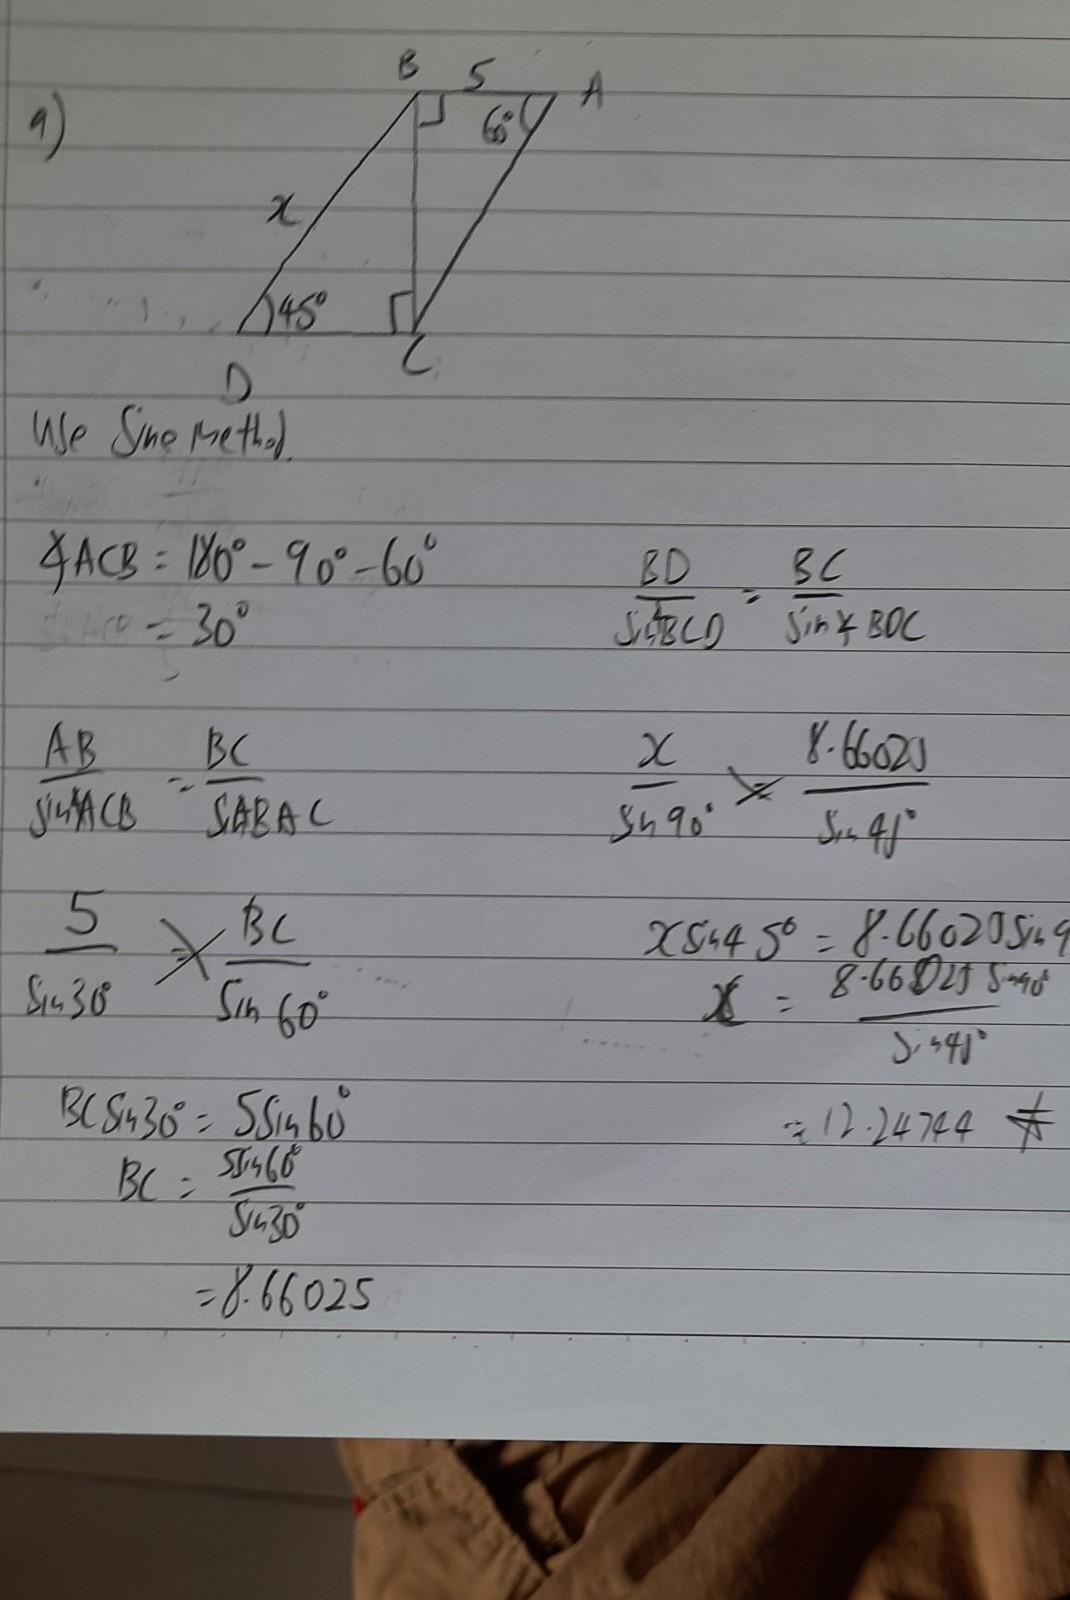 9)
B 5 A
60°
x
45°
C
D
Use Sine Method.
∡ACB = 180° - 90° - 60°
= 30°
AB/sin∡ACB = BC/S∡BAC
5/sin30° = BC/sin60°
BC sin30° = 5sin60°
BC = 5sin60°/sin30°
= 8.66025
BD/sin∡BCD = BC/sin∡BDC
x/sin90° = 8.66025/sin45°
x sin45° = 8.66025 sin9
x = 8.66025 sin90°/sin45°
= 12.24744